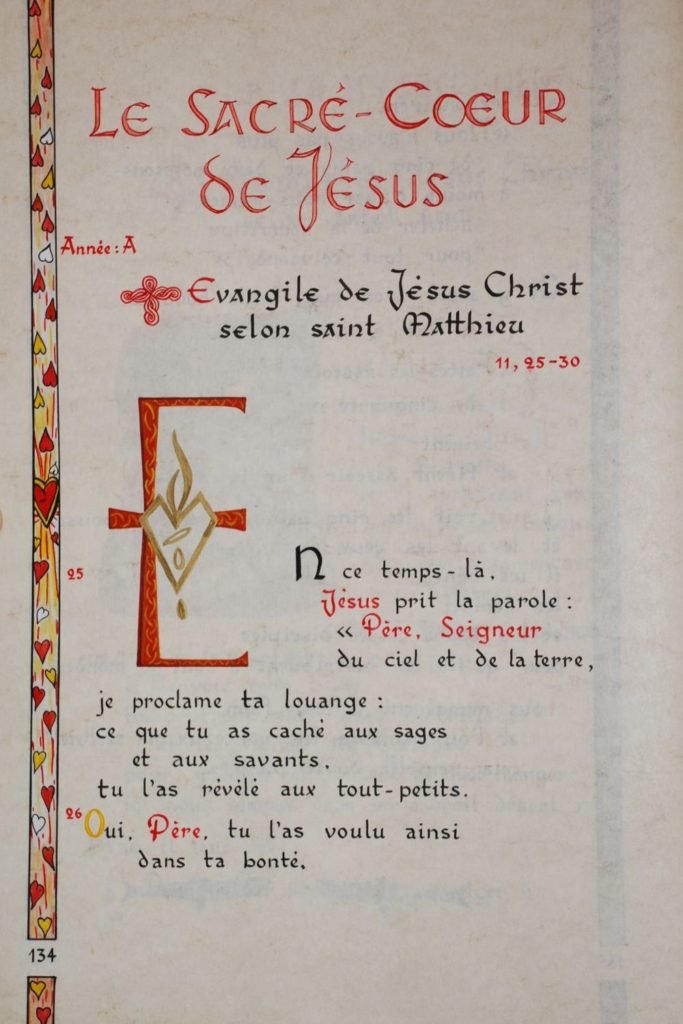 Le Sacré-Cœur
de Jésus
Année : A
Evangile de Jésus Christ
selon saint Matthieu
11, 25-30
25
En ce temps-là,
Jésus prit la parole :
« Père, Seigneur
du ciel et de la terre,
je proclame ta louange :
ce que tu as caché aux sages
et aux savants,
tu l'as révélé aux tout-petits.
26 Oui, Père, tu l'as voulu ainsi
dans ta bonté.
134